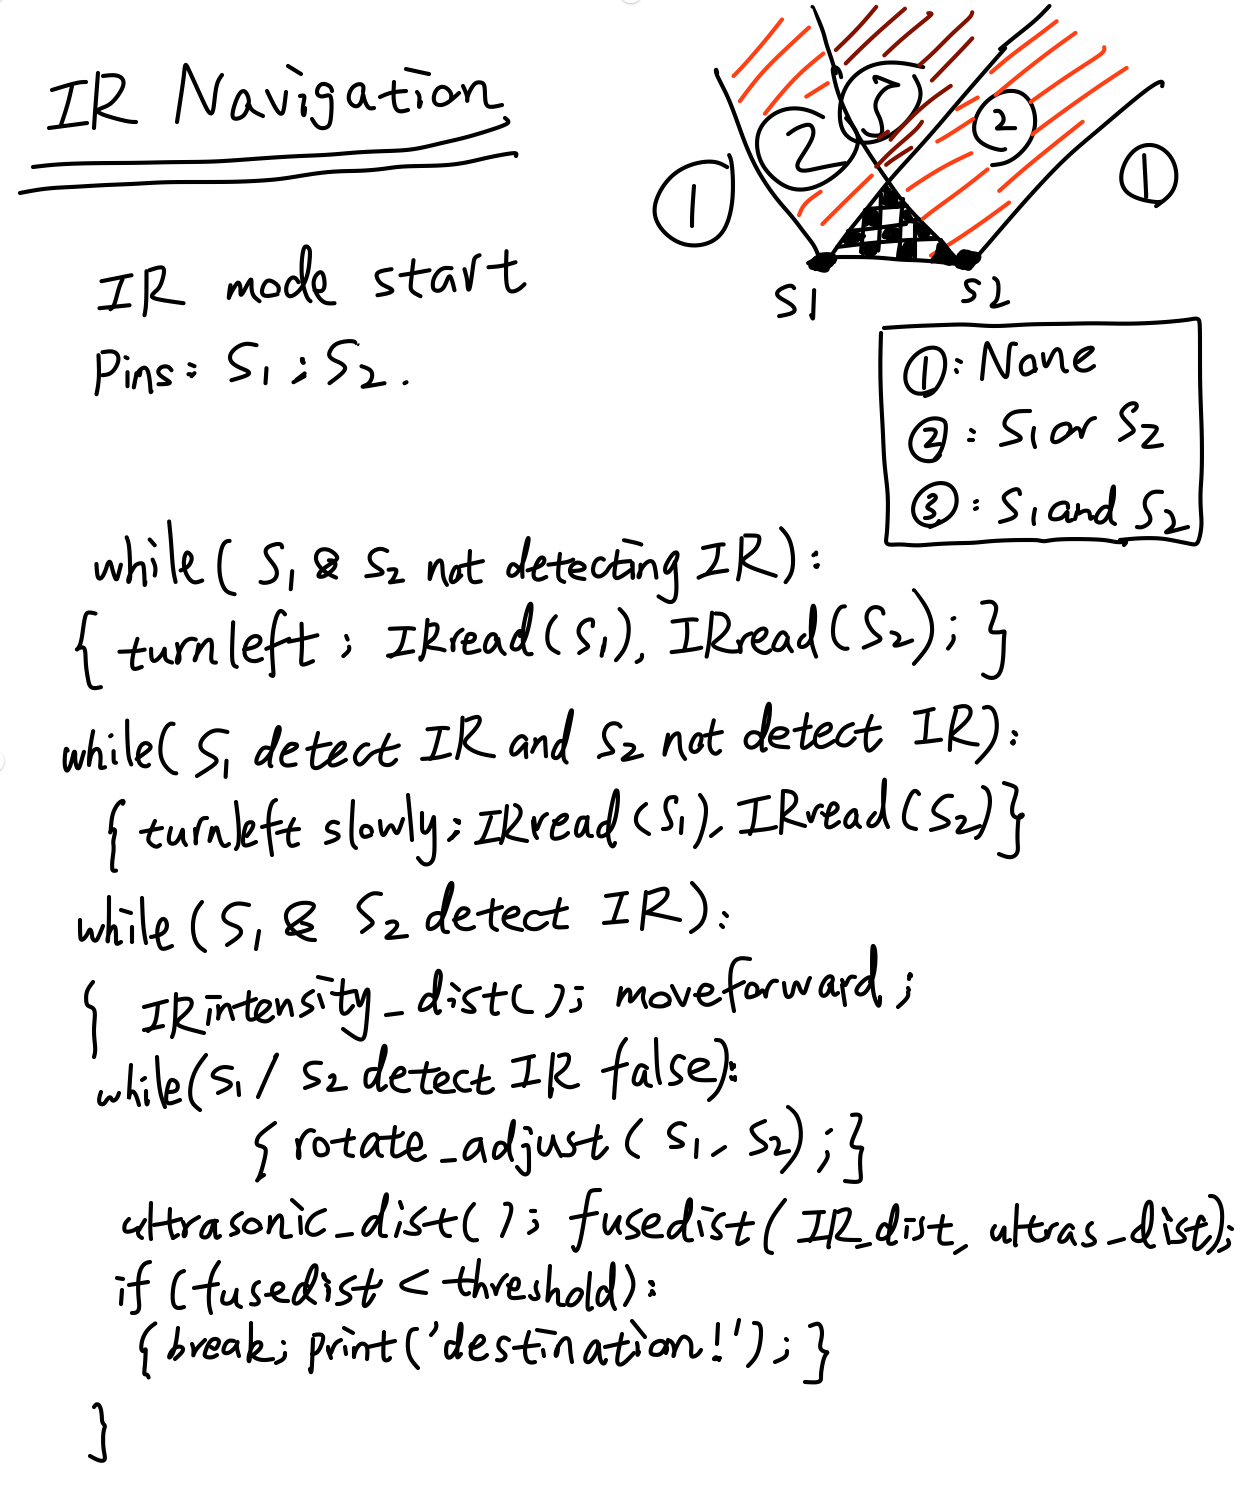 IR Navigation
① ② ③ ② ①
S1 S2
IR mode start
Pins: S1; S2.
①: None
②: S1 or S2
③: S1 and S2
while( S1 & S2 not detecting IR):
{ turnleft ; IRread(S1), IRread(S2); }
while( S1 detect IR and S2 not detect IR):
{ turnleft slowly; IRread(S1), IRread(S2)}
while( S1 & S2 detect IR):
{ IRintensity_dist(); moveforward;
while(S1 / S2 detect IR false):
{ rotate_adjust( S1, S2);}
ultrasonic_dist(); fusedist( IR_dist, ultras_dist);
if (fusedist < threshold):
{break; print('destination!'); }
}